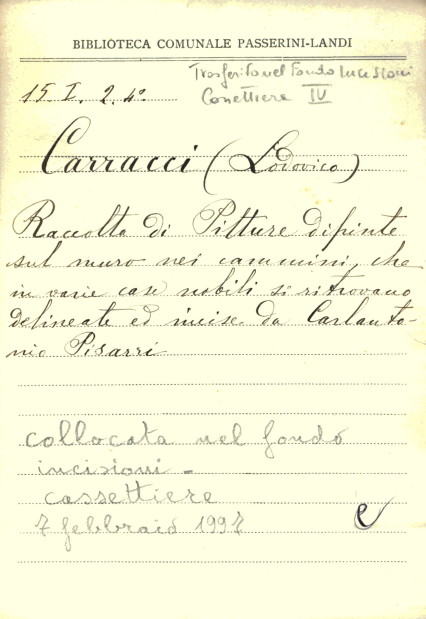 BIBLIOTECA COMUNALE PASSERINI-LANDI
Trasferito nel Fondo Incisioni
15.I.2.4º.
Cassettiere IV
Carracci (Lodovico)
Raccolta di Pitture dipinte
sul muro nei cammini, che
in varie case nobili si ritrovano
delineate ed incise da Carlanto-
nio Pisarri
collocata nel fondo
incisioni -
cassettiere
7 febbraio 1997